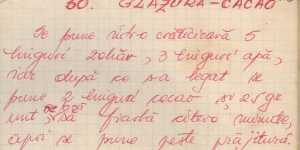 60. GLAZURĂ-CACAO
Se pune într-o craticioară 5
linguri zahăr, 3 linguri apă,
iar după ce s-a legat se
pune 2 linguri cacao și 25 gr
unt, să fiarbă câteva minute,
apoi se pune peste prăjitură.